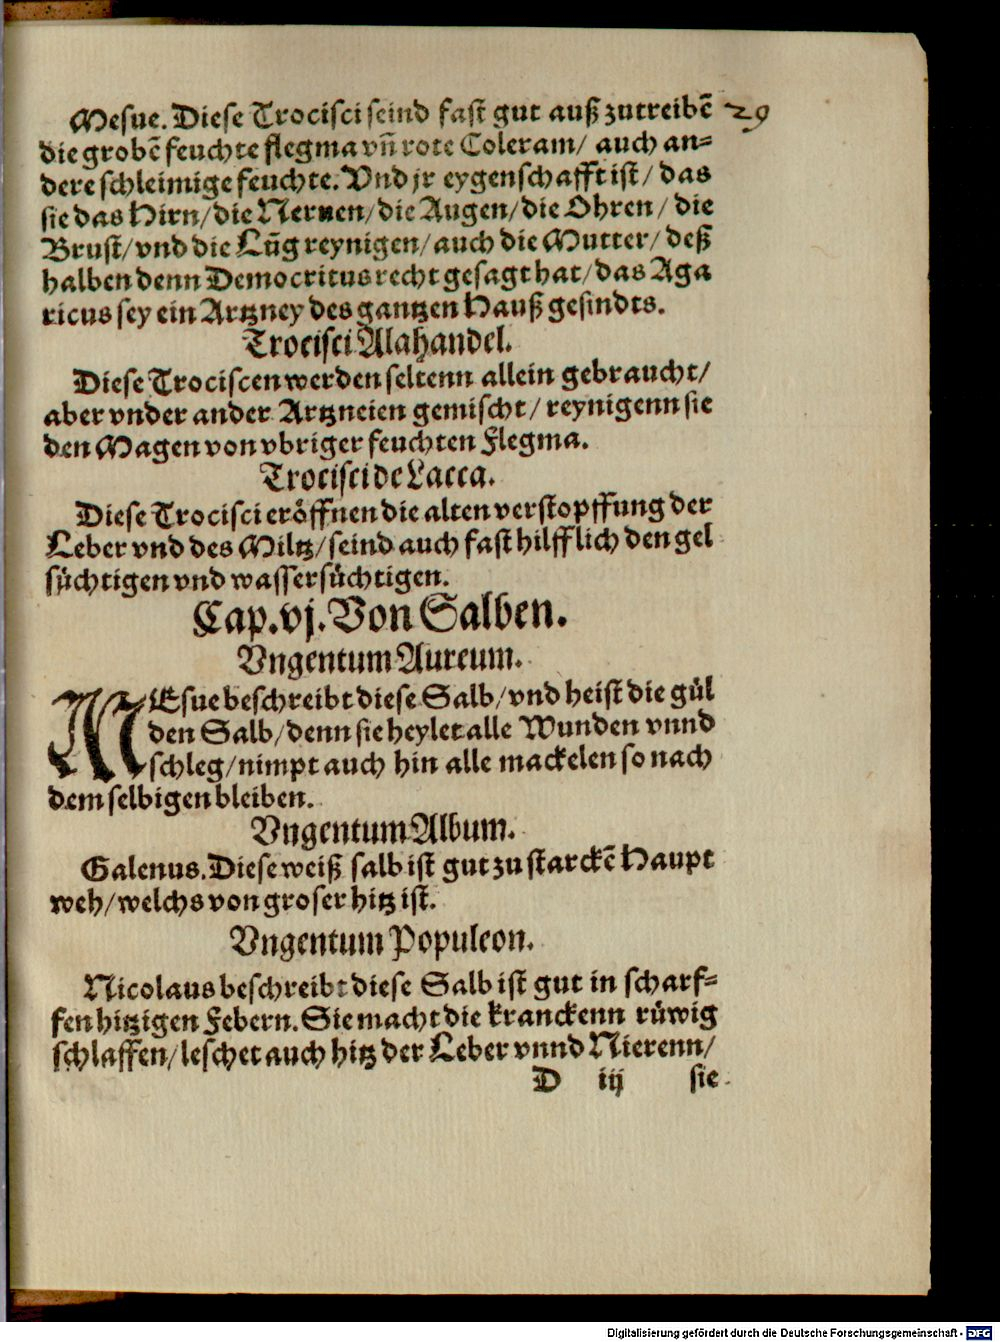 Mesue. Diese Trocisci seind fast gut auß zutreibē 29
die grobē feuchte flegma vñ rote Coleram/ auch an=
dere schleimige feuchte. Vnd jr eygenschafft ist/ das
sie das Hirn/ die Neruen/ die Augen/ die Ohren/ die
Brust/ vnd die Lūg reynigen/ auch die Mutter/ deß
halben denn Democritus recht gesagt hat/ das Aga
ricus sey ein Artzney des gantzen Hauß gesindts.
Trocisci Alahandel.
Diese Trociscen werden seltenn allein gebraucht/
aber vnder ander Artzneien gemischt/ reynigenn sie
den Magen von vbriger feuchten Flegma.
Trocisci de Lacca.
Diese Trocisci eröffnen die alten verstopffung der
Leber vnd des Miltz/ seind auch fast hilfflich den gel
süchtigen vnd wassersüchtigen.
Cap. vj. Von Salben.
Vngentum Aureum.
MEsue beschreibt diese Salb/ vnd heist die gül
den Salb/ denn sie heylet alle Wunden vnnd
schleg/ nimpt auch hin alle mackelen so nach
dem selbigen bleiben.
Vngentum Album.
Galenus. Diese weiß salb ist gut zu starckē Haupt
weh/ welchs von groser hitz ist.
Vngentum Populeon.
Nicolaus beschreibt diese Salb ist gut in scharf=
fen hitzigen Febern. Sie macht die kranckenn rüwig
schlaffen/ leschet auch hitz der Leber vnnd Nierenn/
D iij sie
Digitalisierung gefördert durch die Deutsche Forschungsgemeinschaft - DFG